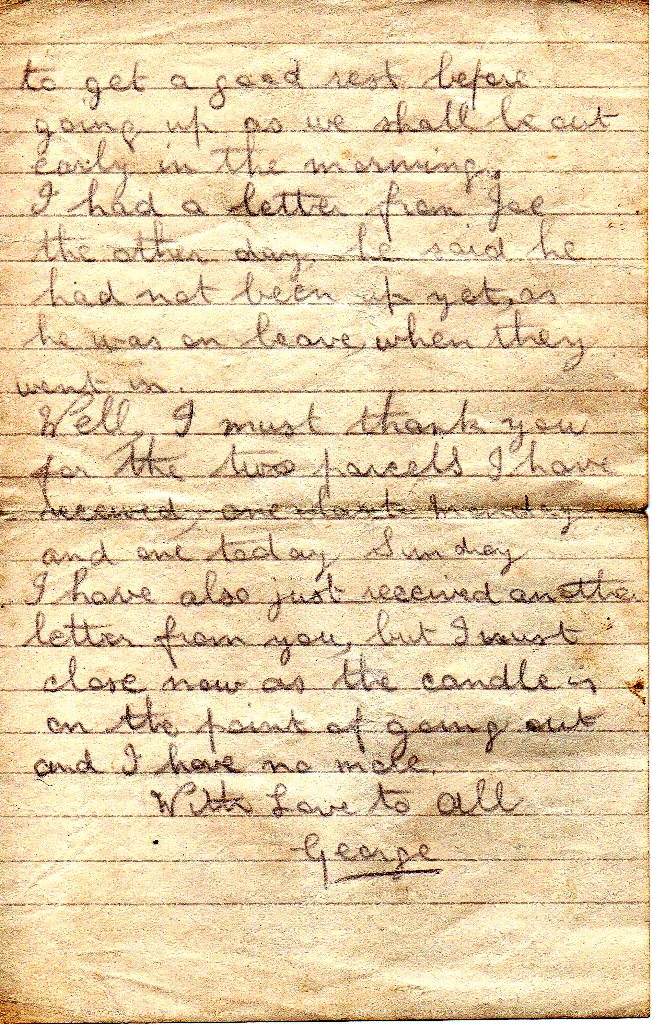 to get a good rest before
going up as we shall be out
early in the morning.
I had a letter from Joe
the other day, he said he
had not been up yet, as
he was on leave, when they
went in.
Well, I must thank you
for the two parcels I have
received, one last Monday
and one today Sunday
I have also just received another
letter from you, but I must
close now as the candle is
on the point of going out
and I have no more.
With Love to all
George